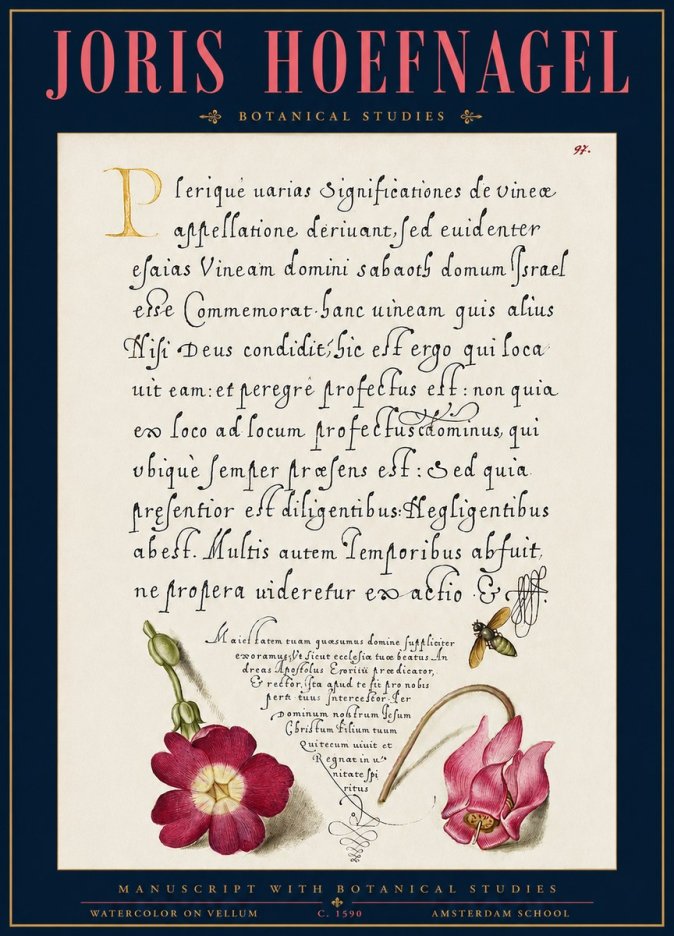 JORIS HOEFNAGEL
BOTANICAL STUDIES
97.
Pleriquè uarias Significationes de vineæ
appellatione deriuant, sed euidenter
esaias Vineam domini sabaoth domum Israel
esse Commemorat. hanc uineam quis alius
Nisi Deus condidit, hic est ergo qui loca
uit eam: et peregrè profectus est: non quia
ex loco ad locum profectus dominus, qui
vbiquè semper præsens est: Sed quia
præsentior est diligentibus: Negligentibus
abest. Multis autem Temporibus abfuit,
ne propera uideretur exactio &
Maiestatem tuam quæsumus domine suppliciter
exoramus, Vt sicut ecclesia tuæ beatus An
dreas Apostolus Exortitit prædicator,
& rector, ista apud te sit pro nobis
perti tuus Intercessor. Per
Dominum nostrum Iesum
Christum Filium tuum
Qui tecum uiuit et
Regnat in u
nitate spi
ritus
MANUSCRIPT WITH BOTANICAL STUDIES
WATERCOLOR ON VELLUM C. 1590 AMSTERDAM SCHOOL